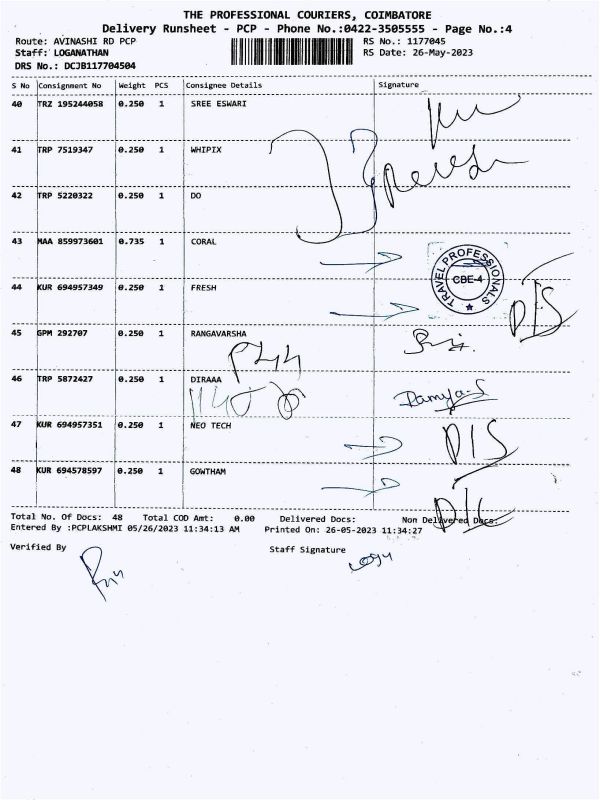 THE PROFESSIONAL COURIERS, COIMBATORE
Delivery Runsheet - PCP - Phone No.:0422-3505555 - Page No.:4
Route: AVINASHI RD PCP RS No.: 1177045
Staff: LOGANATHAN RS Date: 26-May-2023
DRS No.: DCJB117704504
S No Consignment No Weight PCS Consignee Details Signature
40 TRZ 195244058 0.250 1 SREE ESWARI
41 TRP 7519347 0.250 1 WHIPIX
42 TRP 5220322 0.250 1 DO
43 MAA 859973601 0.735 1 CORAL
TRAVEL PROFESSIONALS
CBE-4
44 KUR 694957349 0.250 1 FRESH D/S
45 GPM 292707 0.250 1 RANGAVARSHA
46 TRP 5872427 0.250 1 DIRAAA Ramya.S
47 KUR 694957351 0.250 1 NEO TECH D/S
48 KUR 694578597 0.250 1 GOWTHAM D/L
Total No. Of Docs: 48 Total COD Amt: 0.00 Delivered Docs: Non Delivered Docs:
Entered By :PCPLAKSHMI 05/26/2023 11:34:13 AM Printed On: 26-05-2023 11:34:27
Verified By Staff Signature